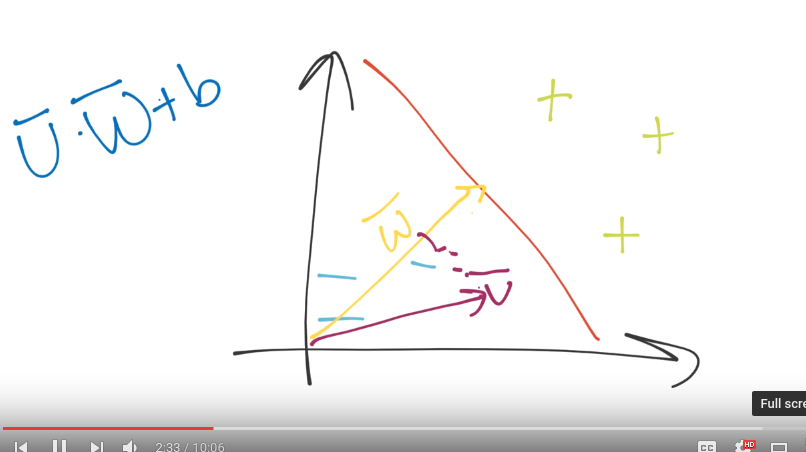 U̅ · w̅ + b
w̅
U̅
Full scre
2:33 / 10:06
CC
HD